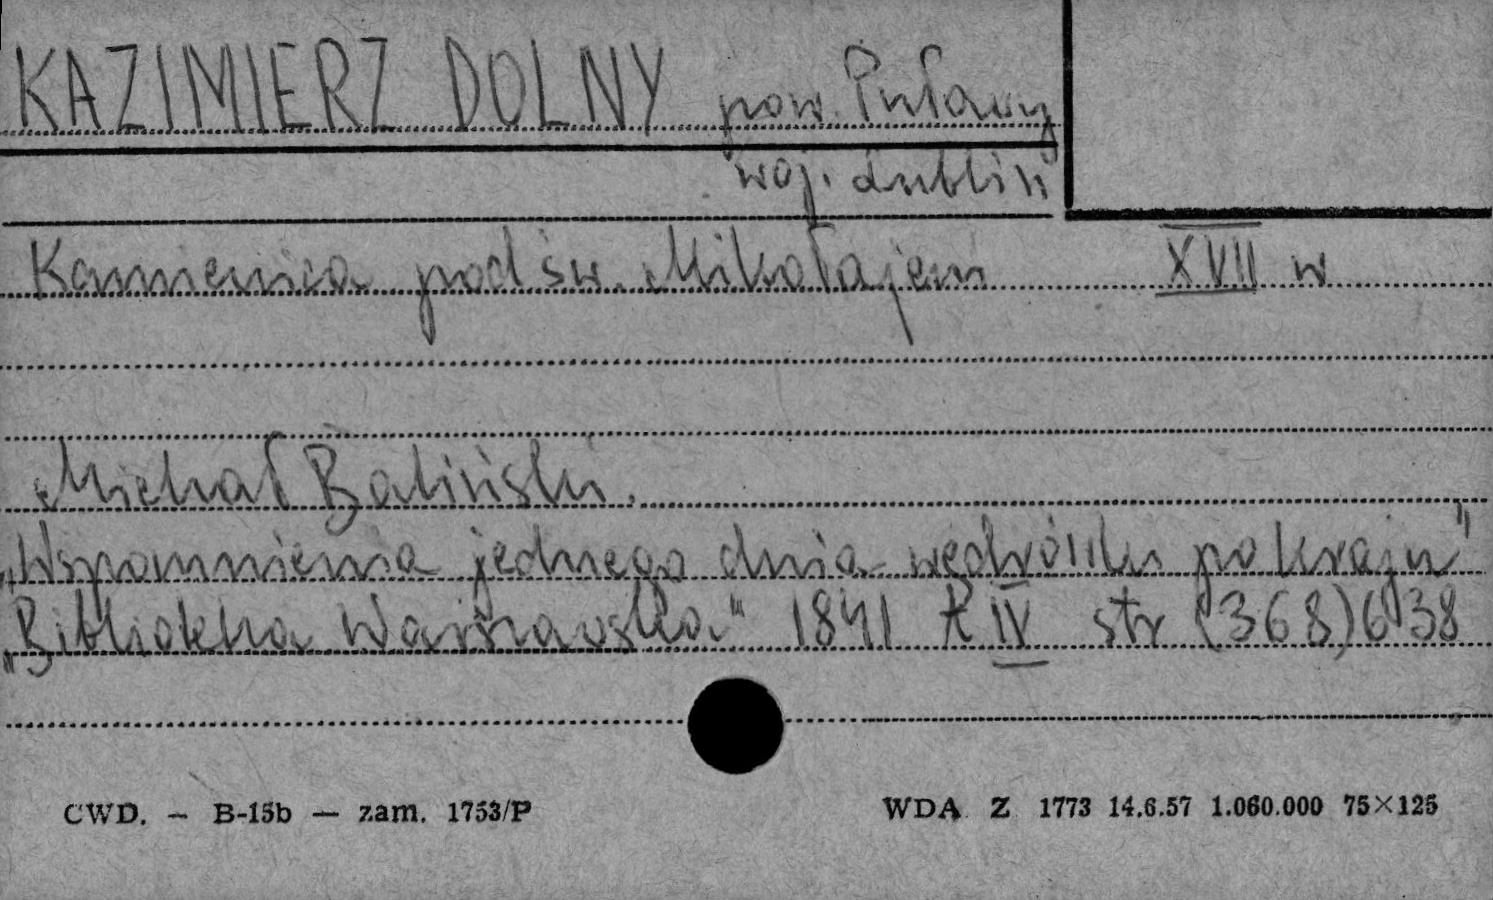 KAZIMIERZ DOLNY pow. Puławy
woj. Lublin
Kamienica pod św. Mikołajem XVII w
Michał Baliński.
„Wspomnienia jednego dnia wędrówki po kraju"
„Biblioteka Warszawska" 1841 t IV str (368) 638
CWD. — B-15b — zam. 1753/P
WDA Z 1773 14.6.57 1.060.000 75×125